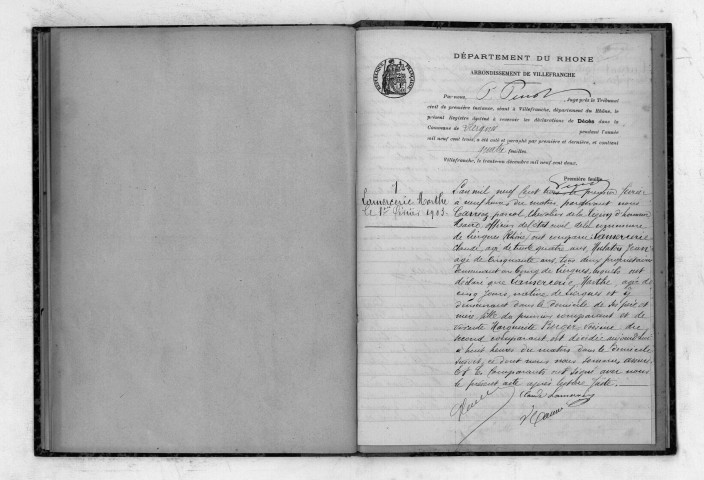 DÉPARTEMENT DU RHONE
ARRONDISSEMENT DE VILLEFRANCHE
Par-nous, Juge près le Tribunal
civil de première instance, séant à Villefranche, département du Rhône, le
présent Registre destiné à recevoir les déclarations de Décès dans la
Commune de pendant l'année
mil neuf cent trois, a été coté et paraphé par première et dernière, et contient
feuilles.
Villefranche, le trente-un décembre mil neuf cent deux.
Première feuille
1
Lamercerie Marthe
Le 1er Février 1903.
L'an mil neuf cent trois le premier février
à neuf heures du matin, pardevant nous
Carrez pascal, Chevalier de la Légion d'honneur
Maire, officier de l'état civil de la commune
de Liergues Rhône, ont comparu Lamercerie
Claude, âgé de trente quatre ans, Mulaton Jean
âgé de cinquante ans, tous deux propriétaires
demeurant au bourg de Liergues, lesquels ont
déclaré que Lamercerie Marthe, âgée de
cinq jours, native de Liergues et y
demeurant dans le domicile de ses père et
mère, fille du premier comparant et de
Marguerite Berger voisine du
second comparant est décédée aujourd'hui
à huit heures du matin dans le domicile
susdit, ce dont nous nous sommes assuré
Et les comparants ont signé avec nous
le présent acte après lecture faite.
Claude Lamercerie